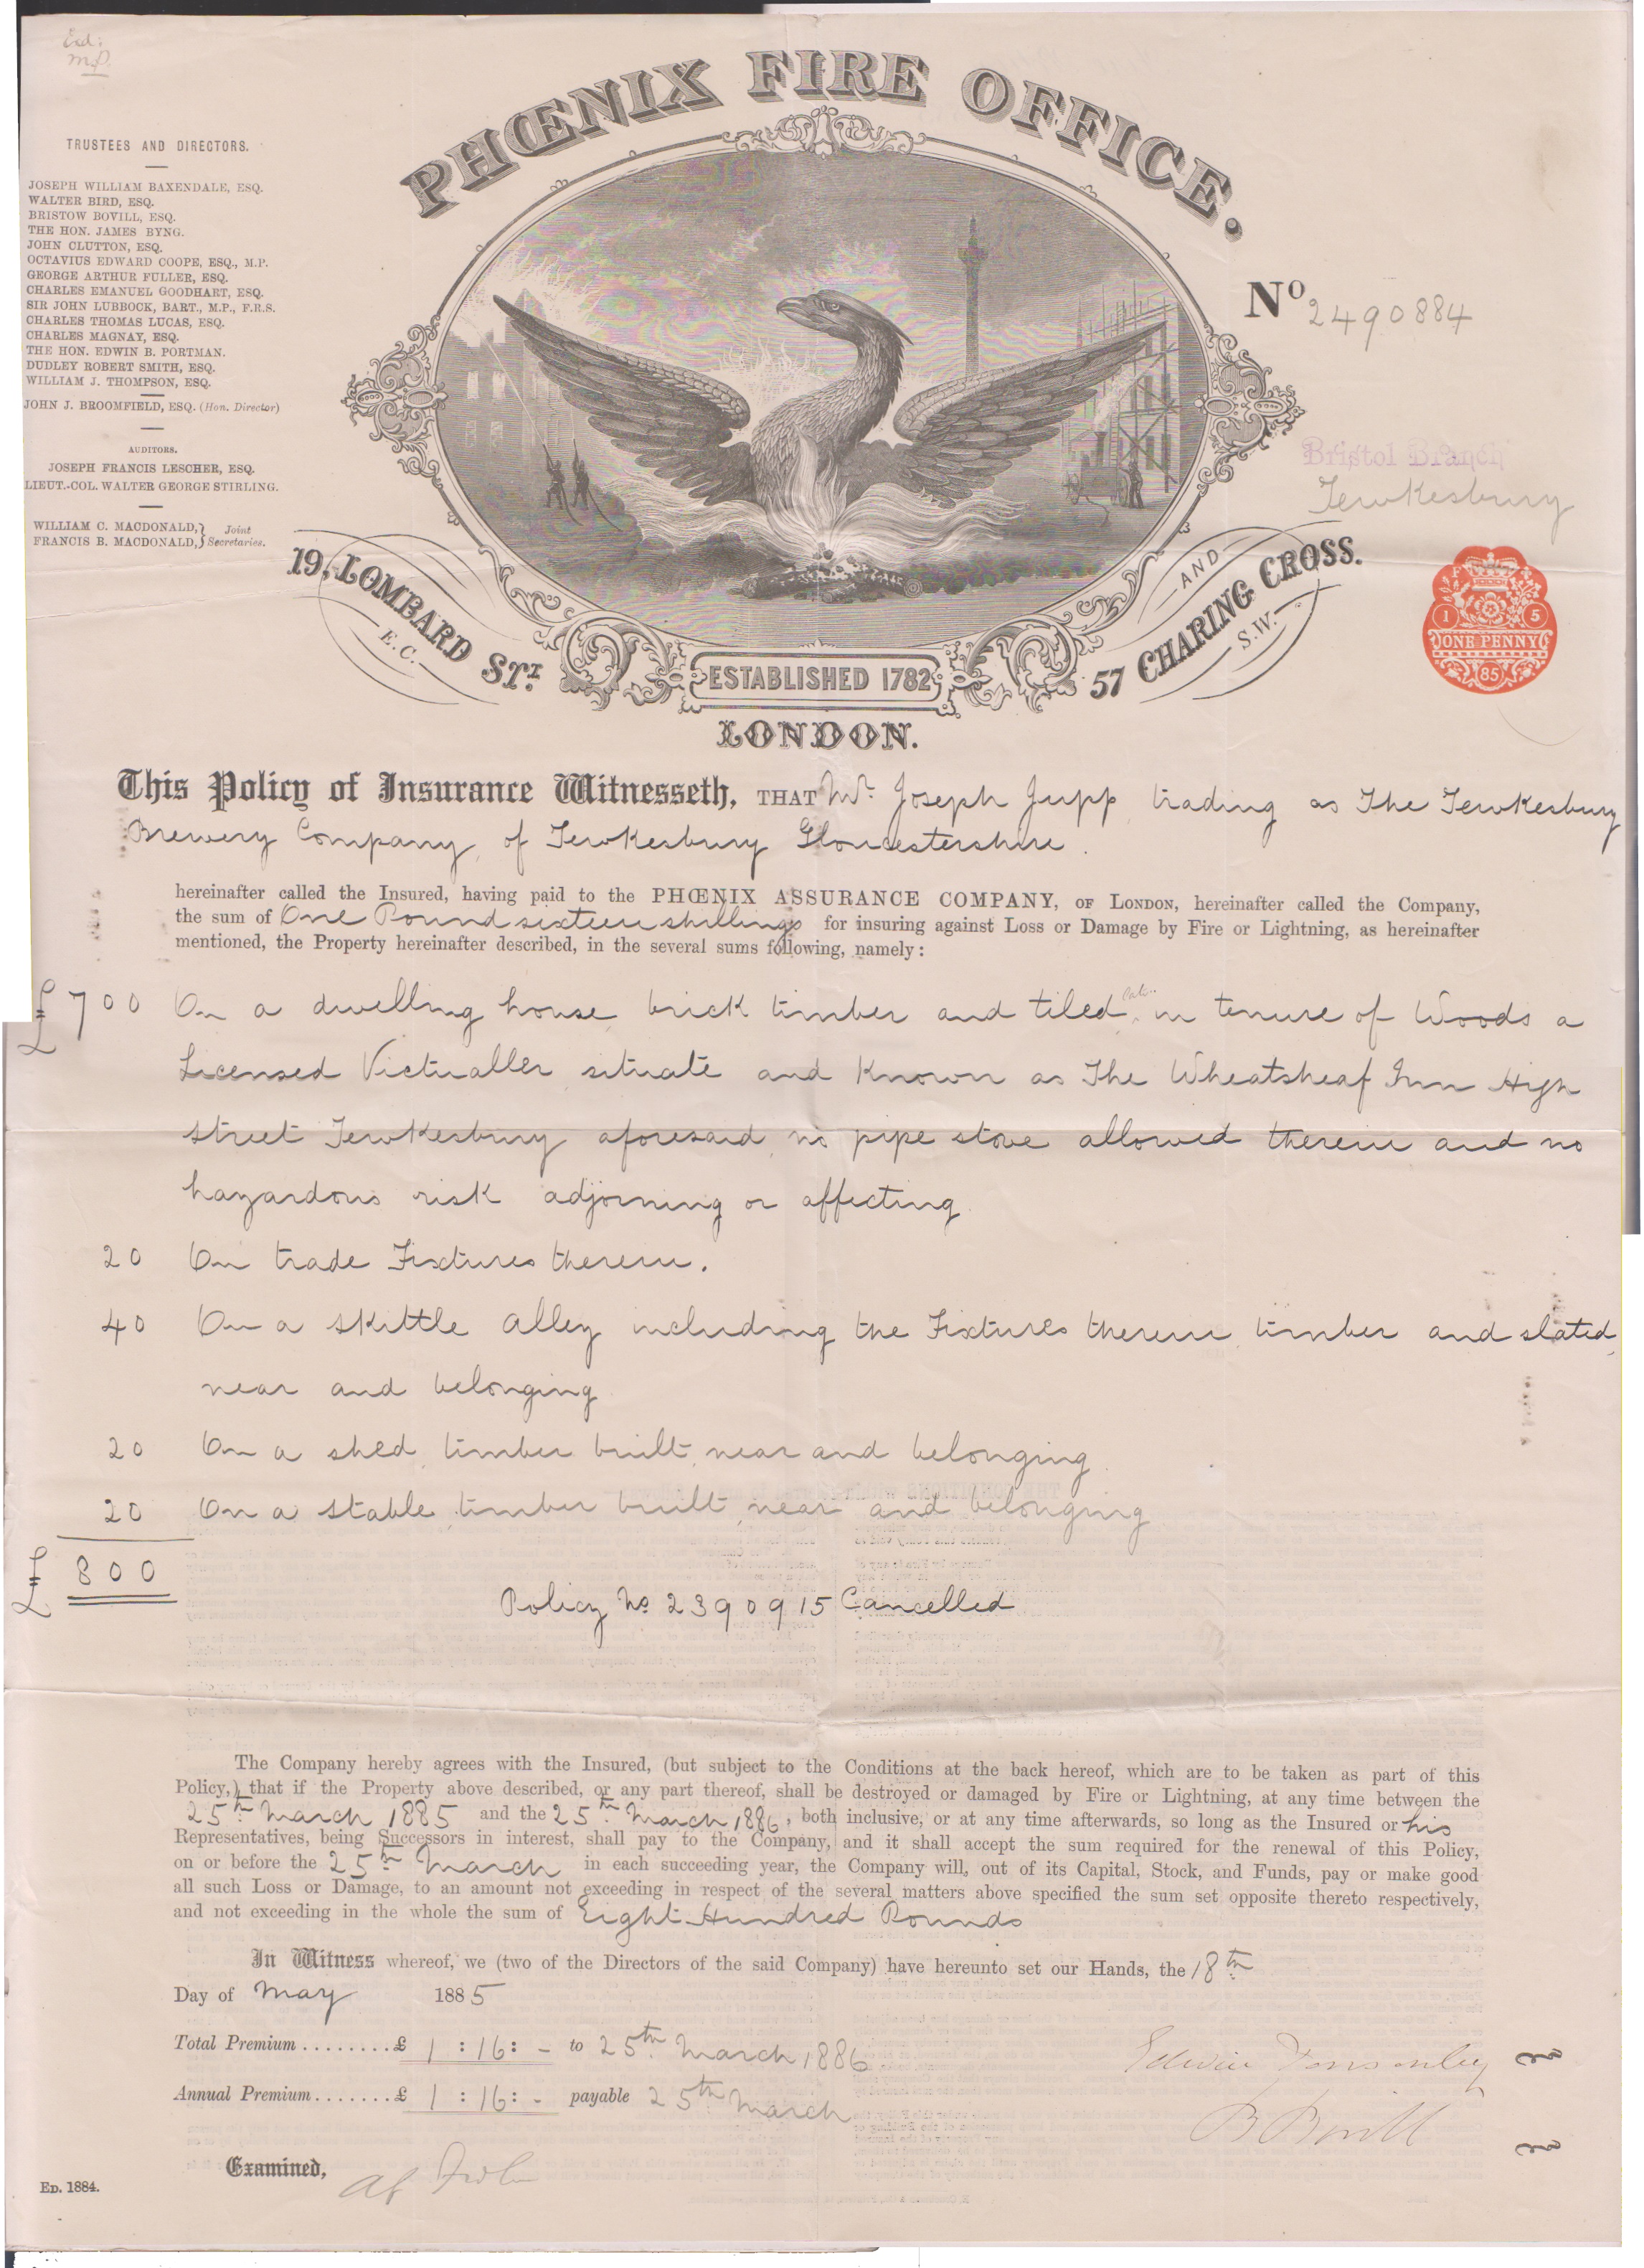 PHŒNIX FIRE OFFICE.
TRUSTEES AND DIRECTORS.
JOSEPH WILLIAM BAXENDALE, ESQ.
WALTER BIRD, ESQ.
BRISTOW BOVILL, ESQ.
THE HON. JAMES BYNG.
JOHN CLUTTON, ESQ.
OCTAVIUS EDWARD COOPE, ESQ., M.P.
GEORGE ARTHUR FULLER, ESQ.
CHARLES EMANUEL GOODHART, ESQ.
SIR JOHN LUBBOCK, BART., M.P., F.R.S.
CHARLES THOMAS LUCAS, ESQ.
CHARLES MAGNAY, ESQ.
THE HON. EDWIN B. PORTMAN.
DUDLEY ROBERT SMITH, ESQ.
WILLIAM J. THOMPSON, ESQ.
JOHN J. BROOMFIELD, ESQ. (Hon. Director)
AUDITORS.
JOSEPH FRANCIS LESCHER, ESQ.
LIEUT.-COL. WALTER GEORGE STIRLING.
WILLIAM C. MACDONALD, } Joint
FRANCIS B. MACDONALD, } Secretaries.
No 2490884
Bristol Branch
Tewkesbury
19, LOMBARD ST.
E.C.
AND
57 CHARING CROSS.
S.W.
1 5
ONE PENNY
85
ESTABLISHED 1782
LONDON.
This Policy of Insurance Witnesseth, THAT Mr. Joseph Jupp, trading as The Tewkesbury
Brewery Company, of Tewkesbury Gloucestershire.
hereinafter called the Insured, having paid to the PHŒNIX ASSURANCE COMPANY, OF LONDON, hereinafter called the Company,
the sum of One Pound sixteen shillings for insuring against Loss or Damage by Fire or Lightning, as hereinafter
mentioned, the Property hereinafter described, in the several sums following, namely:
£700 On a dwelling house, brick timber and tiled, in tenure of Woods a
Licensed Victualler situate and Known as The Wheatsheaf Inn High
street Tewkesbury aforesaid, no pipe stove allowed therein and no
hazardous risk adjoining or affecting.
20 On trade Fixtures therein.
40 On a skittle alley including the Fixtures therein, timber and slated,
near and belonging
20 On a shed, timber built, near and belonging
20 On a stable, timber built, near and belonging
£800
Policy No 2390915 Cancelled
The Company hereby agrees with the Insured, (but subject to the Conditions at the back hereof, which are to be taken as part of this
Policy,) that if the Property above described, or any part thereof, shall be destroyed or damaged by Fire or Lightning, at any time between the
25th March 1885 and the 25th March 1886, both inclusive, or at any time afterwards, so long as the Insured or his
Representatives, being Successors in interest, shall pay to the Company, and it shall accept the sum required for the renewal of this Policy,
on or before the 25th March in each succeeding year, the Company will, out of its Capital, Stock, and Funds, pay or make good
all such Loss or Damage, to an amount not exceeding in respect of the several matters above specified the sum set opposite thereto respectively,
and not exceeding in the whole the sum of Eight Hundred Pounds
In Witness whereof, we (two of the Directors of the said Company) have hereunto set our Hands, the 18th
Day of May 1885
Total Premium ........ £ 1 : 16 : - to 25th March 1886
Annual Premium ....... £ 1 : 16 : - payable 25th March
B Bovill
Examined,
ED. 1884.